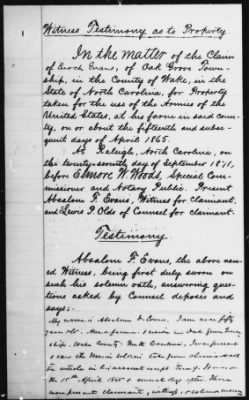 Witness Testimony as to Property
In the matter of the Claim
of Enoch Evans, of Oak Grove Town-
ship, in the County of Wake, in the
State of North Carolina, for Property
taken for the use of the Armies of the
United States, at his farm in said coun-
ty, on or about the fifteenth and subse-
quent days of April 1865.
At Raleigh, North Carolina, on
the twenty-seventh day of September 1871,
before Elmore W. Woods, Special Com-
missioner and Notary Public. Present
Absalom F. Evans, Witness for Claimant,
and Lewis P. Olds of Counsel for claimant.
Testimony
Absalom F. Evans, the above nam-
ed Witness, being first duly sworn on
such his solemn oath, answering ques-
tions asked by Counsel deposes and
says:
My name is Absalom F. Evans. I am
years old. I reside in Oak Grove Town-
ship, Wake County, North Carolina. I was present
the articles in his account
the 15th April 1865